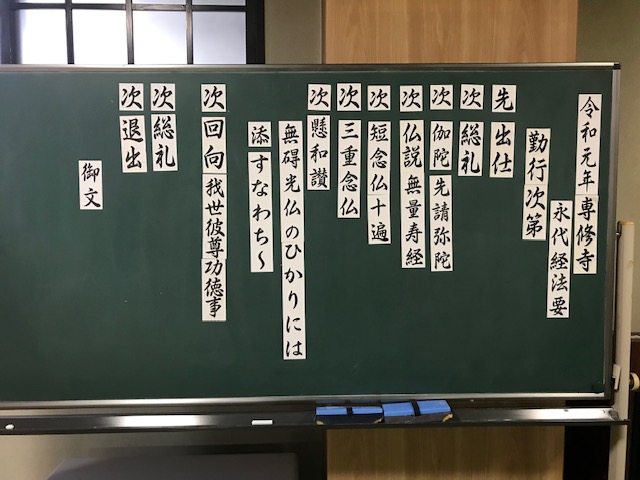 令和元年専修寺
永代経法要
勤行次第
先 出仕
次 総礼
次 伽陀 先請弥陀
次 仏説無量寿経
次 短念仏十遍
次 三重念仏
次 懸和讃
無碍光仏のひかりには
添 すなわち~
次 回向 我世彼尊功徳事
次 総礼
次 退出
御文